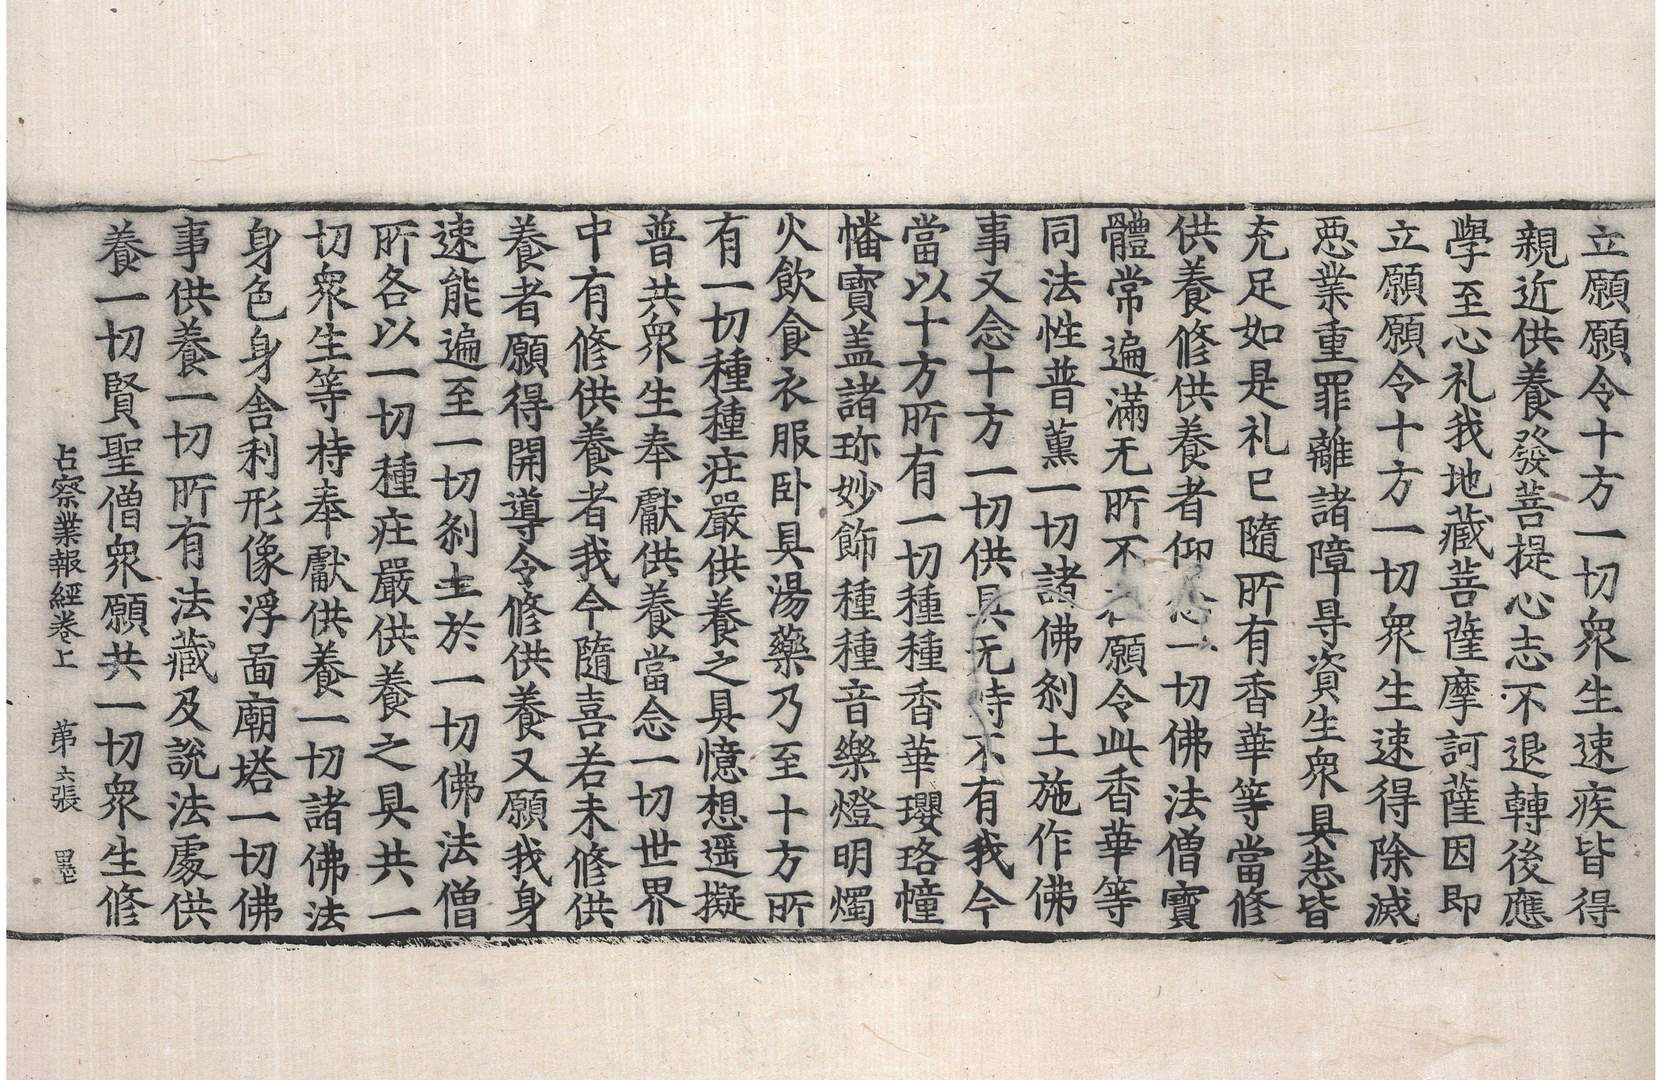 立願願令十方一切衆生速疾皆得
親近供養發菩提心志不退轉後應
學至心礼我地藏菩薩摩訶薩因即
立願願令十方一切衆生速得除滅
惡業重罪離諸障㝵資生衆具悉皆
充足如是礼已隨所有香華等當修
供養修供養者仰念一切佛法僧寶
體常遍滿无所不在願令此香華等
同法性普薰一切諸佛刹土施作佛
事又念十方一切供具无時不有我今
當以十方所有一切種種香華瓔珞幢
幡寶盖諸珎妙飾種種音樂燈明燭
火飲食衣服卧具湯藥乃至十方所
有一切種種庄嚴供養之具憶想遥擬
普共衆生奉獻供養當念一切世界
中有修供養者我今隨喜若未修供
養者願得開導令修供養又願我身
速能遍至一切刹土於一切佛法僧
所各以一切種庄嚴供養之具共一
切衆生等持奉獻供養一切諸佛法
身色身舍利形像浮啚廟塔一切佛
事供養一切所有法藏及說法處供
養一切賢聖僧衆願共一切衆生修
占察業報經卷上 苐六張